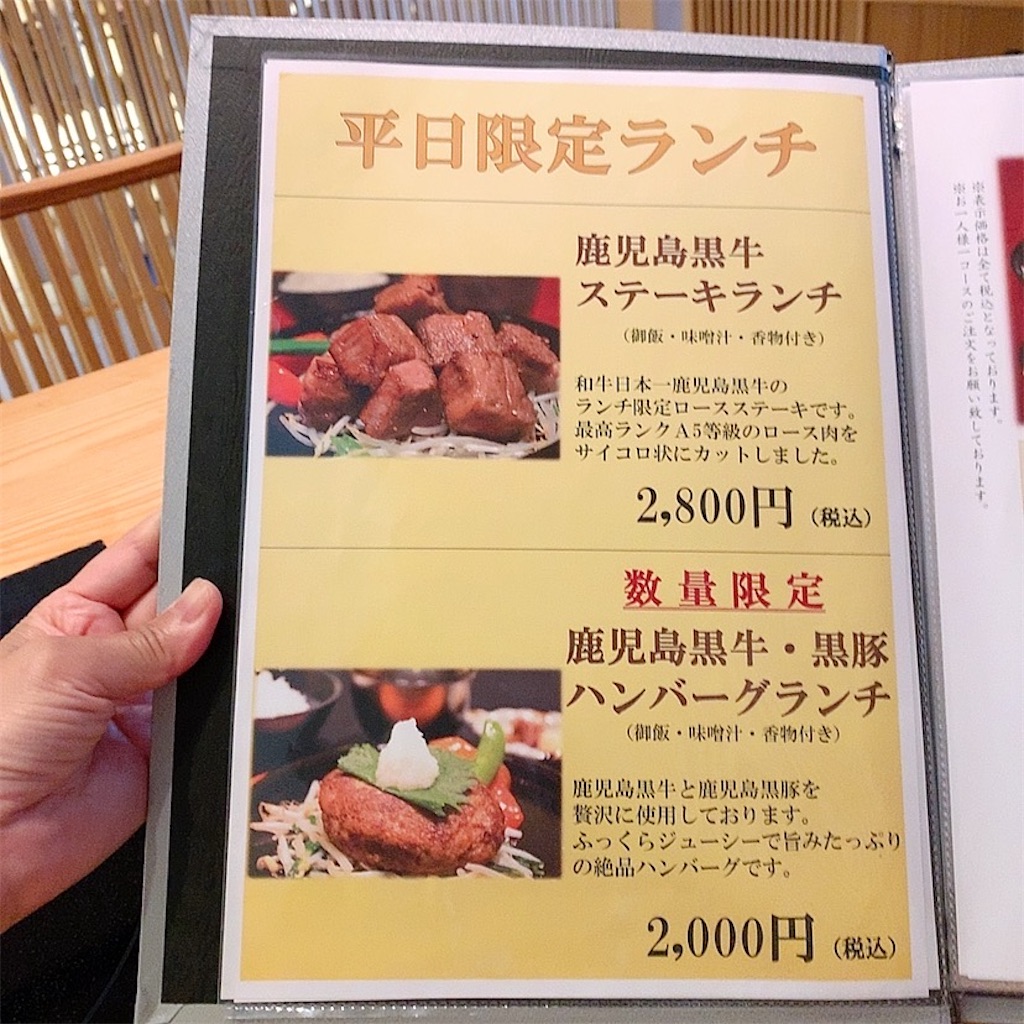 平日限定ランチ
鹿児島黒牛
ステーキランチ
（御飯・味噌汁・香物付き）
和牛日本一鹿児島黒牛の
ランチ限定ロースステーキです。
最高ランクＡ5等級のロース肉を
サイコロ状にカットしました。
2,800円（税込）
数量限定
鹿児島黒牛・黒豚
ハンバーグランチ
（御飯・味噌汁・香物付き）
鹿児島黒牛と鹿児島黒豚を
贅沢に使用しております。
ふっくらジューシーで旨みたっぷり
の絶品ハンバーグです。
2,000円（税込）
※表示価格は全て税込となっております。
※お一人様一コースのご注文をお願い致しております。